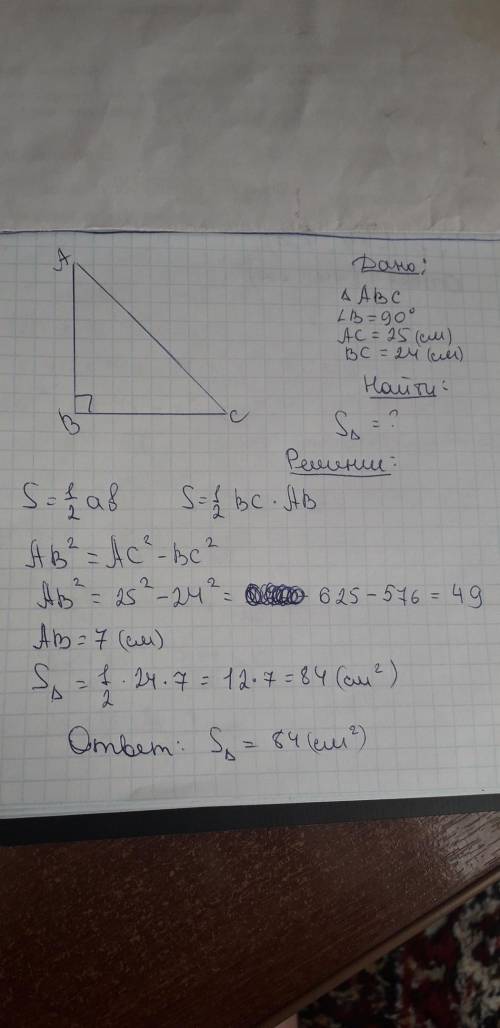 A
B
C
Дано:
Δ ABC
∠B = 90°
AC = 25 (см)
BC = 24 (см)
Найти:
S△ = ?
Решение:
S = 1/2 ab S = 1/2 BC · AB
AB² = AC² - BC²
AB² = 25² - 24² = 625 - 576 = 49
AB = 7 (см)
S△ = 1/2 · 24 · 7 = 12 · 7 = 84 (см²)
Ответ: S△ = 84 (см²)